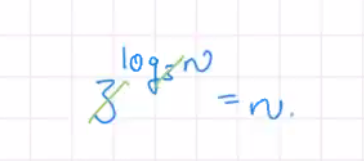 3^{log_3 n} = n.